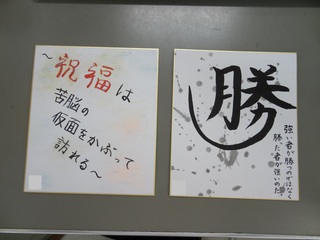 ～祝福は
苦脳の
仮面をかぶって
訪れる～
勝
強い者が勝つのではなく
勝った者が強いのだ。